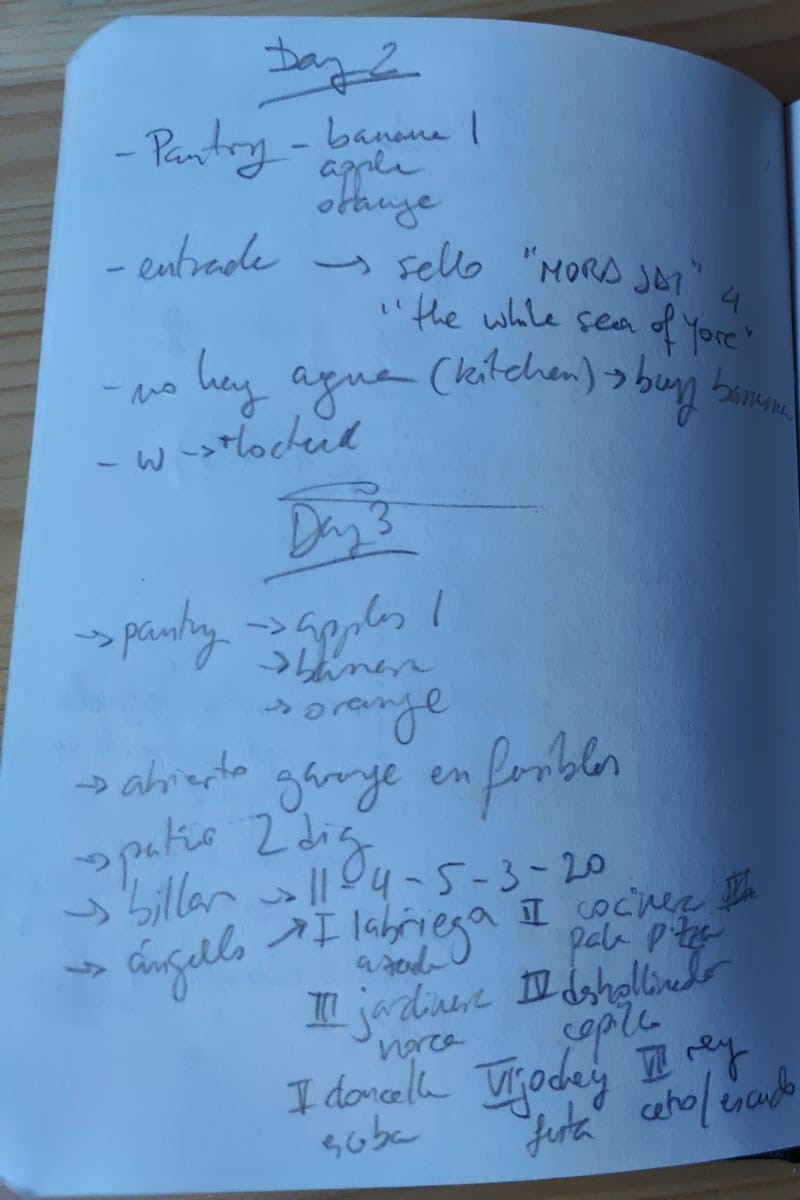 Day 2
- Pantry - banana 1
apple
orange
- entrada → sello "MORA JAI" 4
"the while sea of yore"
- no hay agua (kitchen) → buy banana
- W → locked
Day 3
→ pantry → apples 1
→ banana
→ orange
→ abierto garaye en fusibles
→ patio 2 dig
→ billar → 11 - 4 - 5 - 3 - 20
→ ángells → I labriega II cocinera
azada pala pizza
III jardinera IV deshollinador
cepillo
V doncella VI jockey VII rey
escoba fusta cetro/escudo